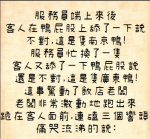 服務員端上來後
客人在鴨屁股上舔了一下說
不對,這是隻南京鴨!
服務員忙換了一隻
客人又舔了一下鴨屁股說
還是不對,這是隻廣東鴨!
這事驚動了飯店老闆
老闆非常激動地跑出來
跪在客人面前,連磕三個響頭
痛哭流沸的說: